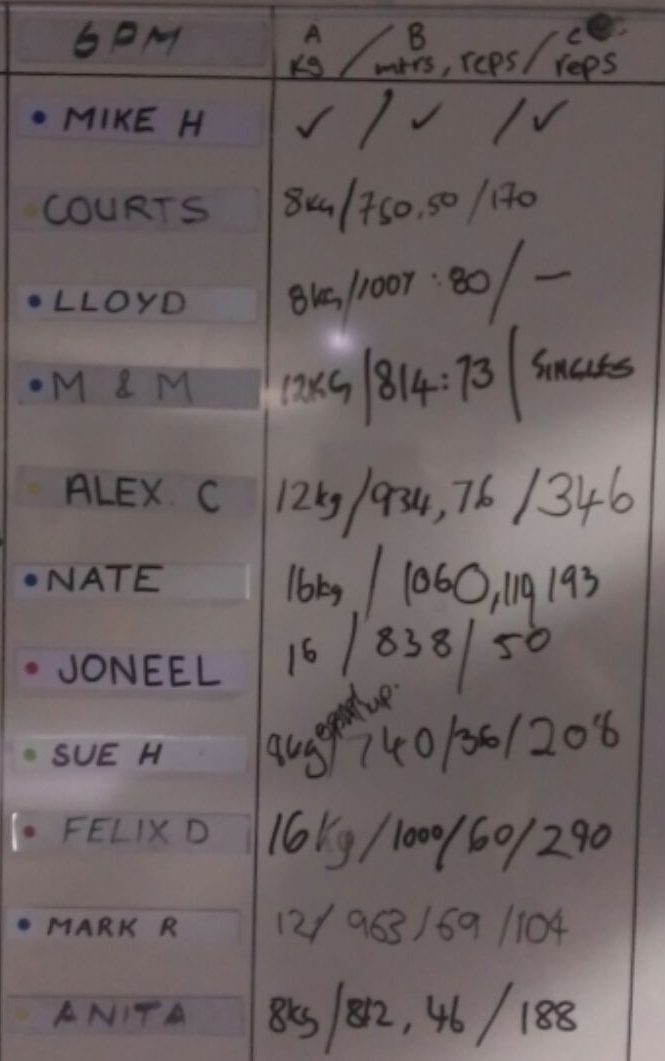 6PM A Kg / B mtrs, reps / C reps
• MIKE H ✓ / ✓ / ✓
COURTS 8kg/750.50/170
• LLOYD 8kg/1007:80/—
• M & M 12KG/814:73/SINGLES
ALEX. C 12kg/934,76/346
• NATE 16kg / 1060,119 193
• JONEEL 16 / 838 / 50
• SUE H 8kg / 740/36/208
• FELIX D 16Kg/1000/60/290
• MARK R 12/963/69/104
ANITA 8kg/812, 46/188